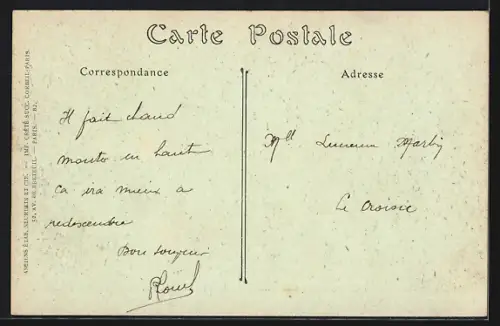 Carte Postale
Correspondance
Adresse
Il fait chaud
monter en haut
ca ira mieux a
redescendre
Bon souvenir
Mlle Lucienne
Le Croisic
ANCIENS ÉTAB. NEURDEIN ET CIE. — IMP. CRÉTÉ SUCC. CORBEIL-PARIS.
52, AV. DE BRETEUIL. — PARIS.